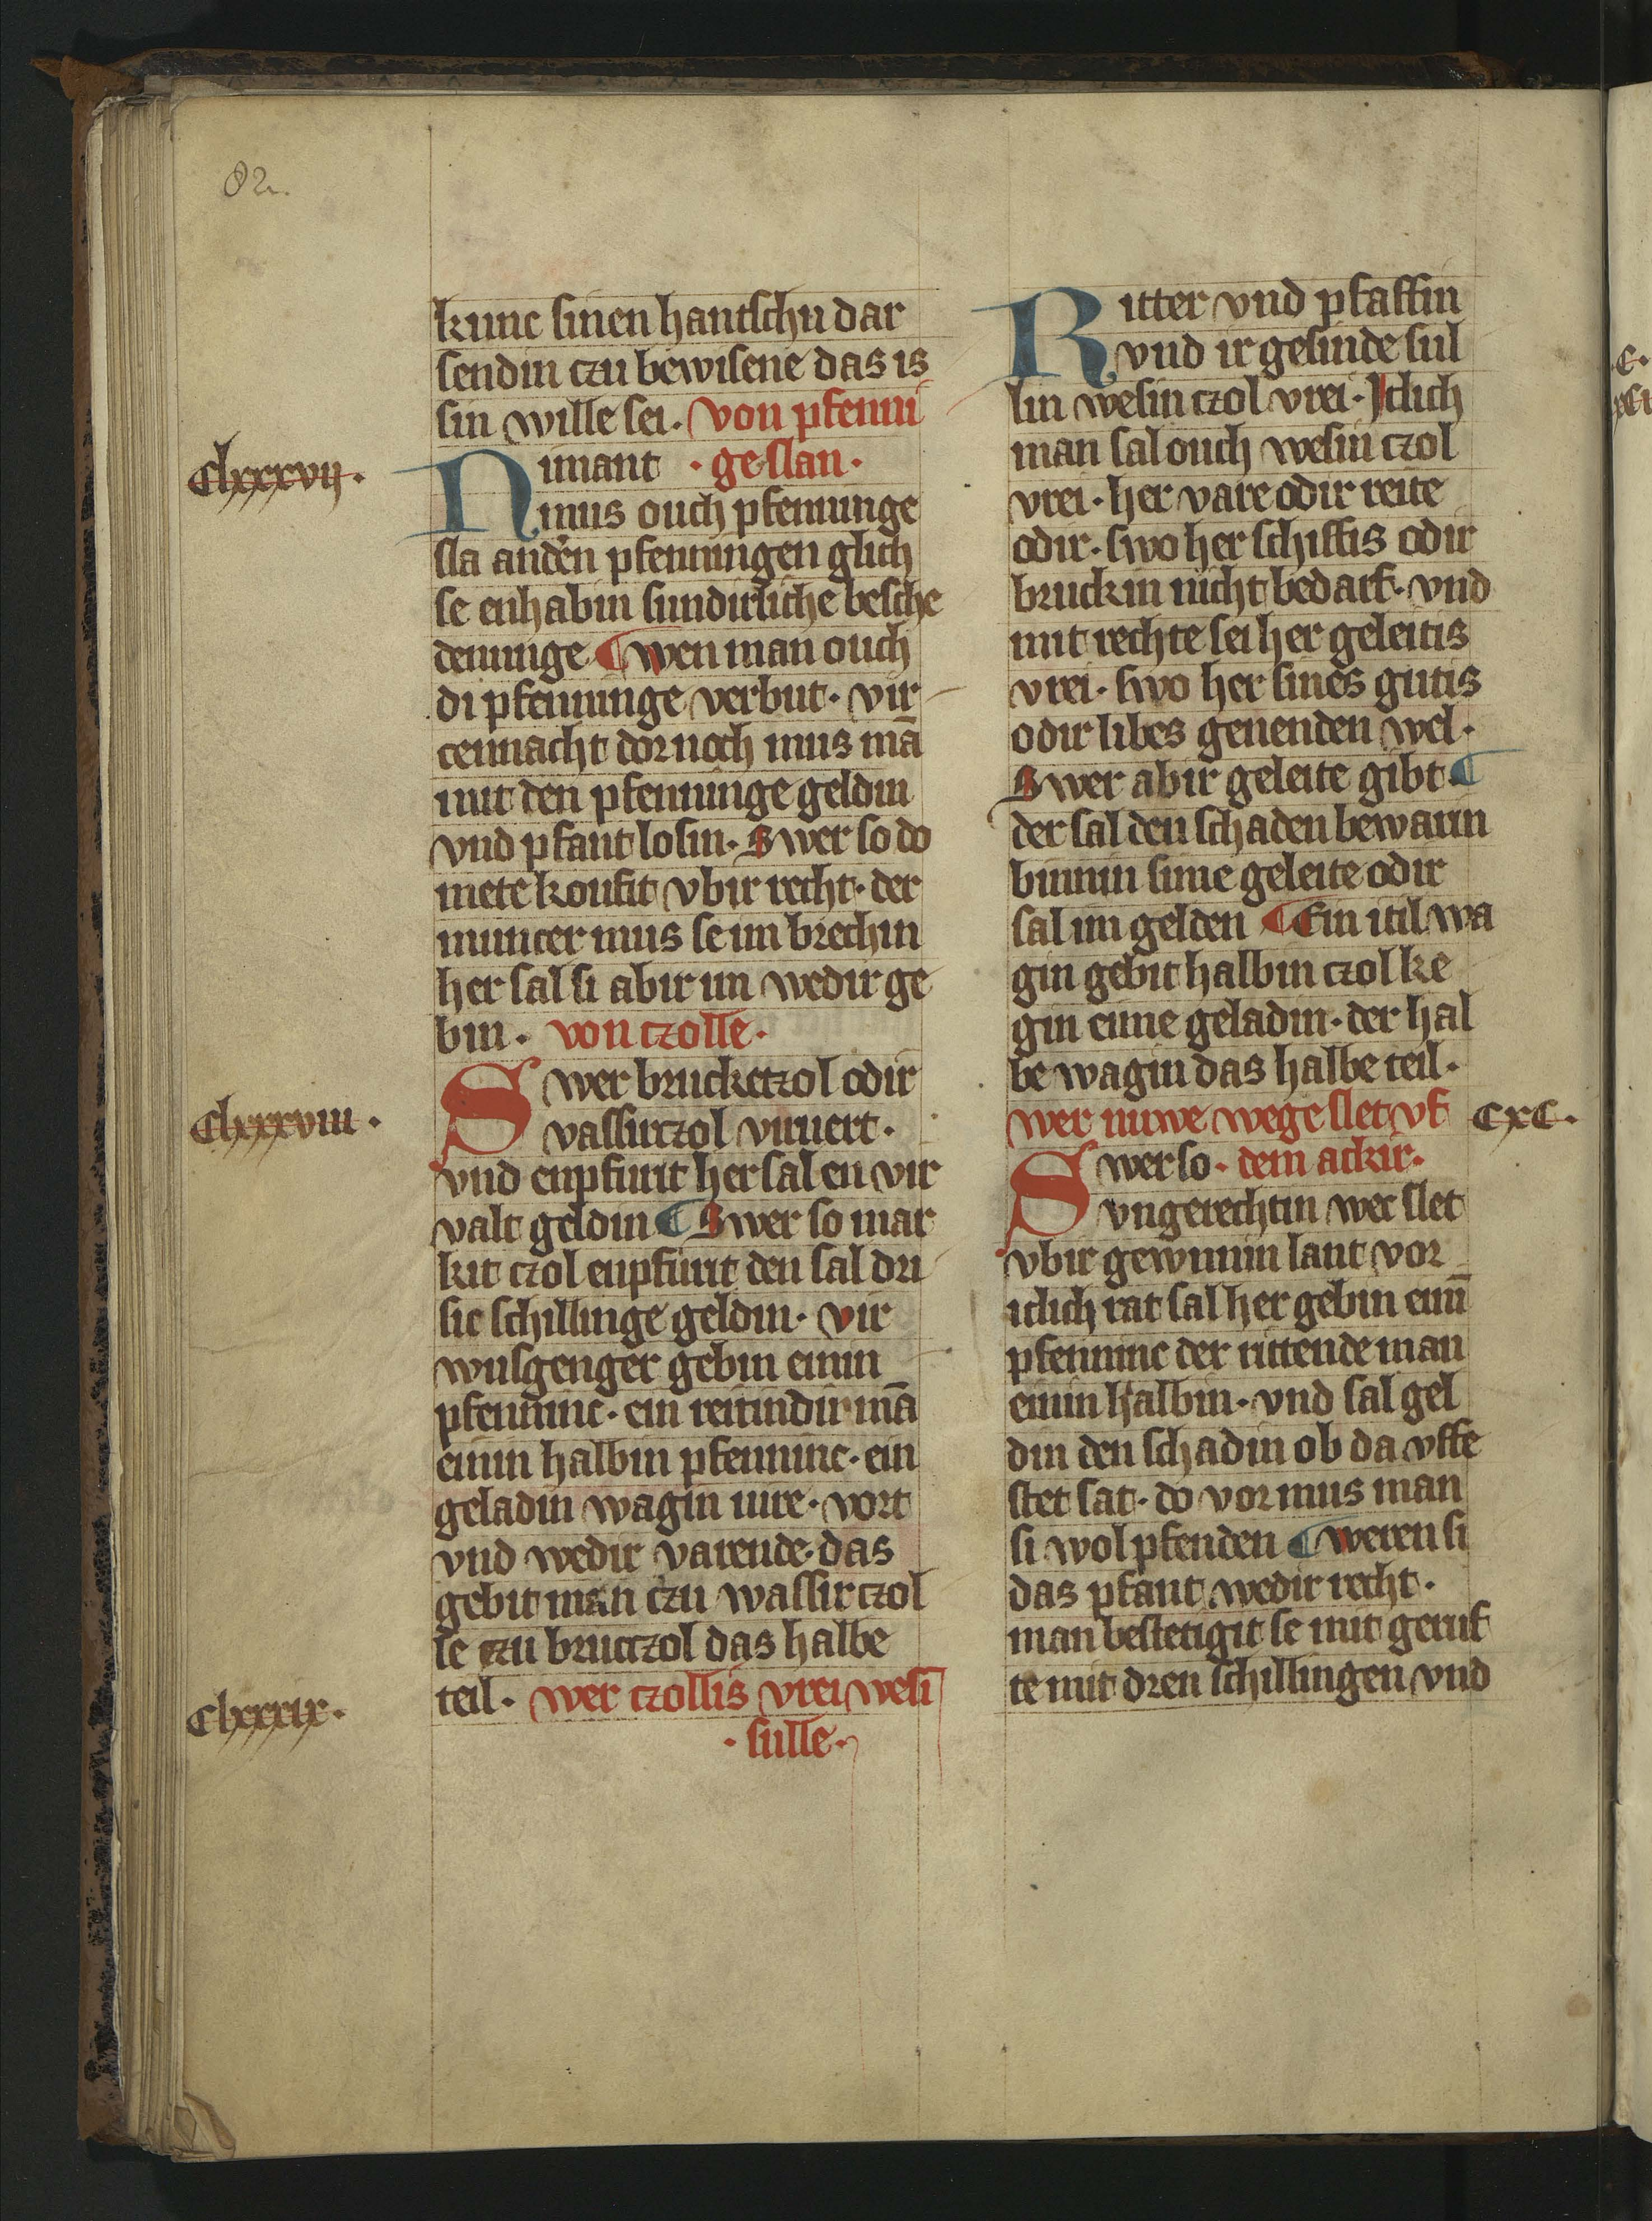 82.
kunc sinen hantschu dar
sendin czu bewisene das is
sin wille sei. von pfenni
Clxxxvij.
Nimant · geslan ·
mus ouch pfenninge
sla andẽn pfenningen glich
se enhabin sundirliche besche
denunge ¶ wen man ouch
di pfenninge verbut · vir
cennacht dornoch mus mā
mit den pfenninge geldin
vnd pfant losin · Swer so do
mete koufit vbir recht · der
muncer mus se im brechin
her sal si abir im wedir ge
bin · von czolle ·
Clxxxviii ·
Swer bruckczol odir
vassirczol vuuert ·
vnd enpfurit her sal en vir
valt geldin ¶ Swer so mar
kit czol enpfurit den sal dri
sic schillinge geldin · vir
wusgenger gebin einin
pfenninc · ein reitindir mā
einin halbin pfenninc · ein
geladin wagin iiire · vort
vnd wedir varende · das
gebit man czu wassirczol
le czu brucczol das halbe
Clxxxix ·
teil · wer czollis vrei wesī
· sulle ·
Ritter vnd pfaffin
vnd ir gesinde sul
lin wesin czol vrei · Jclich
man sal ouch wesin czol
vrei · her vare odir reite
odir · swo her schiffis odir
bruckin nicht bedarf · vnd
mit rechte sei her geleitis
vrei · swo her sines gutis
odir libes genenden wel ·
Swer abir geleite gibt ¶
der sal den schaden bewarin
binnin sime geleite odir
sal im gelden ¶ Ein itil wa
gin gebit halbin czol ke
gin eime geladin · der hal
be wagin das halbe teil ·
wer nuwe wege slet vf
CXC ·
Swer so · dem ackir ·
vngerechtin wec slet
vbir gewunnin lant vor
iclich rat sal her gebin einī
pfenninc der rittende man
einin halbin · vnd sal gel
din den schadin ob da vffe
stet sat · do vor mus man
si wol pfenden ¶ weren si
das pfant wedir recht ·
man bestetigit se mit geruf
te mit dren schillingen vnd